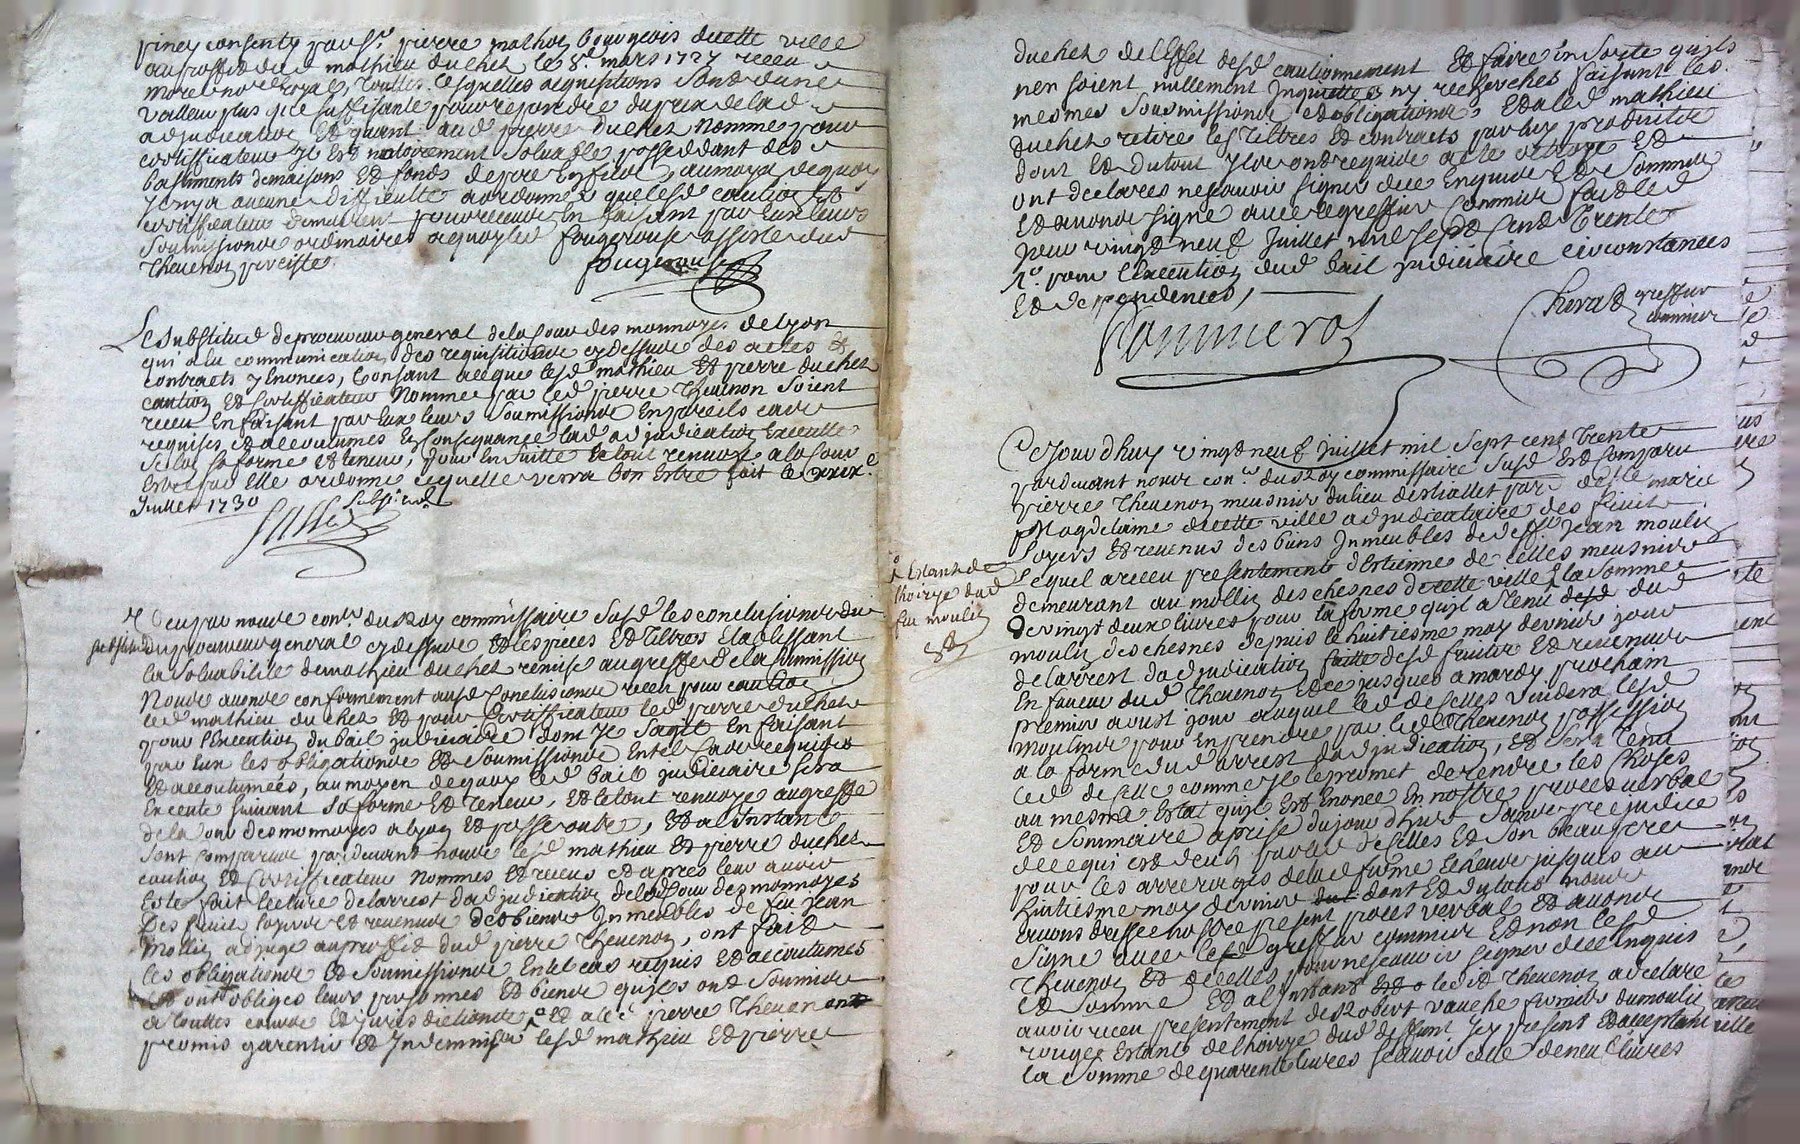 piney consenty par sr. pierre mathon bourgeois de cette ville
au proffit dud mathieu duchet le 8e mars 1727 receu
more no.re royal, touttes lesquelles acquisitions sont dune
valleur plus que suffisante pour repondre du prix de lad
adjudication Et quant aud pierre duchet nommé pour
certifficateur Il Est notoirement solvable possedant des
bastiments de maisons Et fonds de pre Enfilie, au moyen dequoy
Il ny a aucune difficulté a ordonner que lesd caution Et
certifficateur demeurent pour receus En faisant par Eux leurs
soumissions ordinaires acquoy led fougerouse assisté dud
Thevenon persiste.
fougerouse
Le substitud de procureur general de la Cour des monnoyes de Lyon
qui a Eu communication des requisitions cydessus des actes Et
contracts y Enonces, Consant aceque lesd mathieu Et pierre duchet
caution Et Certifficateur Nommes par led pierre Thevenon soient
receu En faisant par Eux leurs soumissions En pareils cas
requises Et accoutumes En Consequance lad adjudication Executtée
selon sa forme Et teneur, pour En suitte le tout renvoyé a la Cour
Estre par Elle ordonné cequelle verra bon Estre fait ce xxix e
Juillet 1730
Veu par nous con.er du Roy commissaire susd les conclusions du
substitud du procureur general cydessus Et les pieces Et tittres Etablissant
la solvabilité de mathieu duchet remise au greffe de la Commission
Nous avons conformement ausd Conclusions receu pour caution
led mathieu duchet Et pour Certifficateur led pierre duchet
pour l'Execution du bail judiciaire dont Il sagit En faisant
par Eux les obligations Et soumissions En tel Cas requises
Et accoutumées, au moyen dequoy led bail judiciaire sera
Executé suivant sa forme Et teneur, Et le tout renvoyé au greffe
de la cour des monnoyes a Lyon Et passé outre, Et a l'instant
sont comparus pardevant nous lesd mathieu Et pierre duchet
caution Et Certifficateur nommes Et receus Et apres leur avoir
Esté fait lecture de larrest dadjudication de la Cour des monnoyes
Des fruits loyers Et revenus des biens Immeubles de feu Jean
mollin adjugé au proffit dud pierre Thevenon, ont fait
les obligations Et soumissions En tel cas requis Et accoutumes
Et ont obliges leurs personnes Et biens quils ont soumis
a touttes cours Et jurisdictions Et a led pierre Thevenon
promis garentir Et Indemniser lesd mathieu Et pierre
duchet de l'Effet desd cautionnement Et faire En sorte quils
nen soient nullement Inquiettes ny recherches faisant les
mesmes soumissions Et obligations, Et a led mathieu
duchet retiré les tiltres Et contracts par luy produitte
dont Et du tout Ils ont requis acte octroyé Et
ont declares ne savoir signer de ce Enquis Et Sommes
Et avons signé avec le greffier Commis fait led
jour vingt neuf Juillet mil sept Cent Trente
pour l'Execution dud bail judiciaire circonstances
Et dependences,
Pommerol
Cherald greffier
commis
Cejourdhuy vingt neuf juillet mil sept cent trente
pardevant nous con.er du Roy commissaire susd Est Comparu
pierre Thevenon meusnier du lieu destiallet parr.e de ste marie
Magdelaine de cette ville adjudicataire des fruits
Loyers Et revenus des biens Immeubles de deff.t Jean moulin
Lequel a receu presentement d'Estienne de Celles meusnier
demeurant au mollin des chesnes de cette ville la somme
de vingt deux livres pour la forme quil a tenu dud
moulin des chesnes depuis le huitiesme may dernier jour
de larrest dadjudication faitte desd fruits Et revenus
En faveur dud Thevenon Et ce jusques a mardy prochain
premier aoust jour auquel led de Celles vuidera lesd
moulins pour En prendre par led Thevenon possession
a la forme dud arrest dadjudication, Et sera tenu
led de Celle comme Il le promet de rendre les choses
au mesme Estat quil Est Enoncé En nostre proces verbal
Et sommaire aprise du jour dhier sans prejudice
de ce qui est deub par led de Celles Et son beaufrere
pour les arrerages de lad ferme Echeue jusques au
huitiesme may dernier dont Et du tout nous
avons dressé nostre present proces verbal Et avons
signé avec led greffier commis Et non lesd
Thevenon Et decelles pour ne scavoir signer de ce Enquis
Et sommé Et a l'instant led Thevenon a declaré
avoir receu presentement de Robert vauche fermier du moulin
rouge Estant de l'hoirye dud deffunt Icy present Et acceptant
la somme de quarente livres scavoir celle de neuf livres
Estant de
lhoirye dud
feu moulin